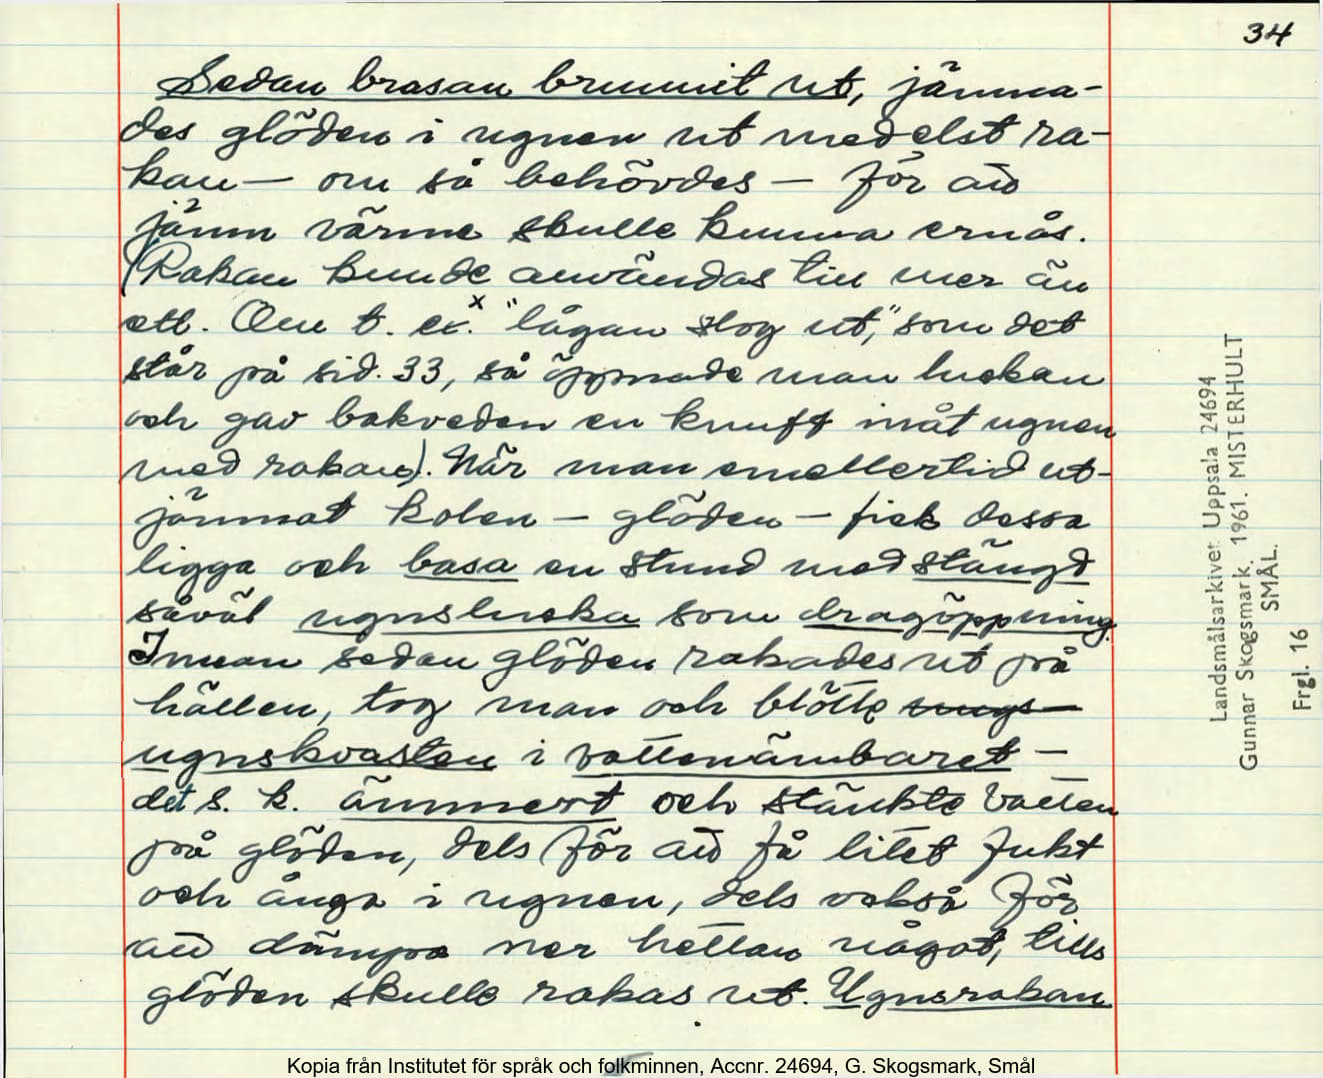 34
Sedan brasan brunnit ut, jämna-
des glöden i ugnen ut medelst ra-
kan — om så behövdes — för att
jämn värme skulle kunna ernås.
(Rakan kunde användas till mer än
ett. Om t. ex.x "lågan slog ut," som det
står på sid. 33, så öppnade man luckan
och gav bakveden en knuff inåt ugnen
med rakan). När man emellertid ut-
jämnat kolen — glöden — fick dessa
ligga och basa en stund med stängd
såväl ugnslucka som dragöppning.
Innan sedan glöden rakades ut på
hällen, tog man och blötte
ugnskvasten i vattenämbaret —
det s. k. ämmert och stänkte vatten
på glöden, dels för att få litet fukt
och ånga i ugnen, dels också för
att dämpa ner hettan något, tills
glöden skulle rakas ut. Ugnsrakan
Landsmålsarkivet Uppsala 24694
Gunnar Skogsmark, 1961. MISTERHULT
SMÅL.
Frgl. 16
Kopia från Institutet för språk och folkminnen, Accnr. 24694, G. Skogsmark, Smål